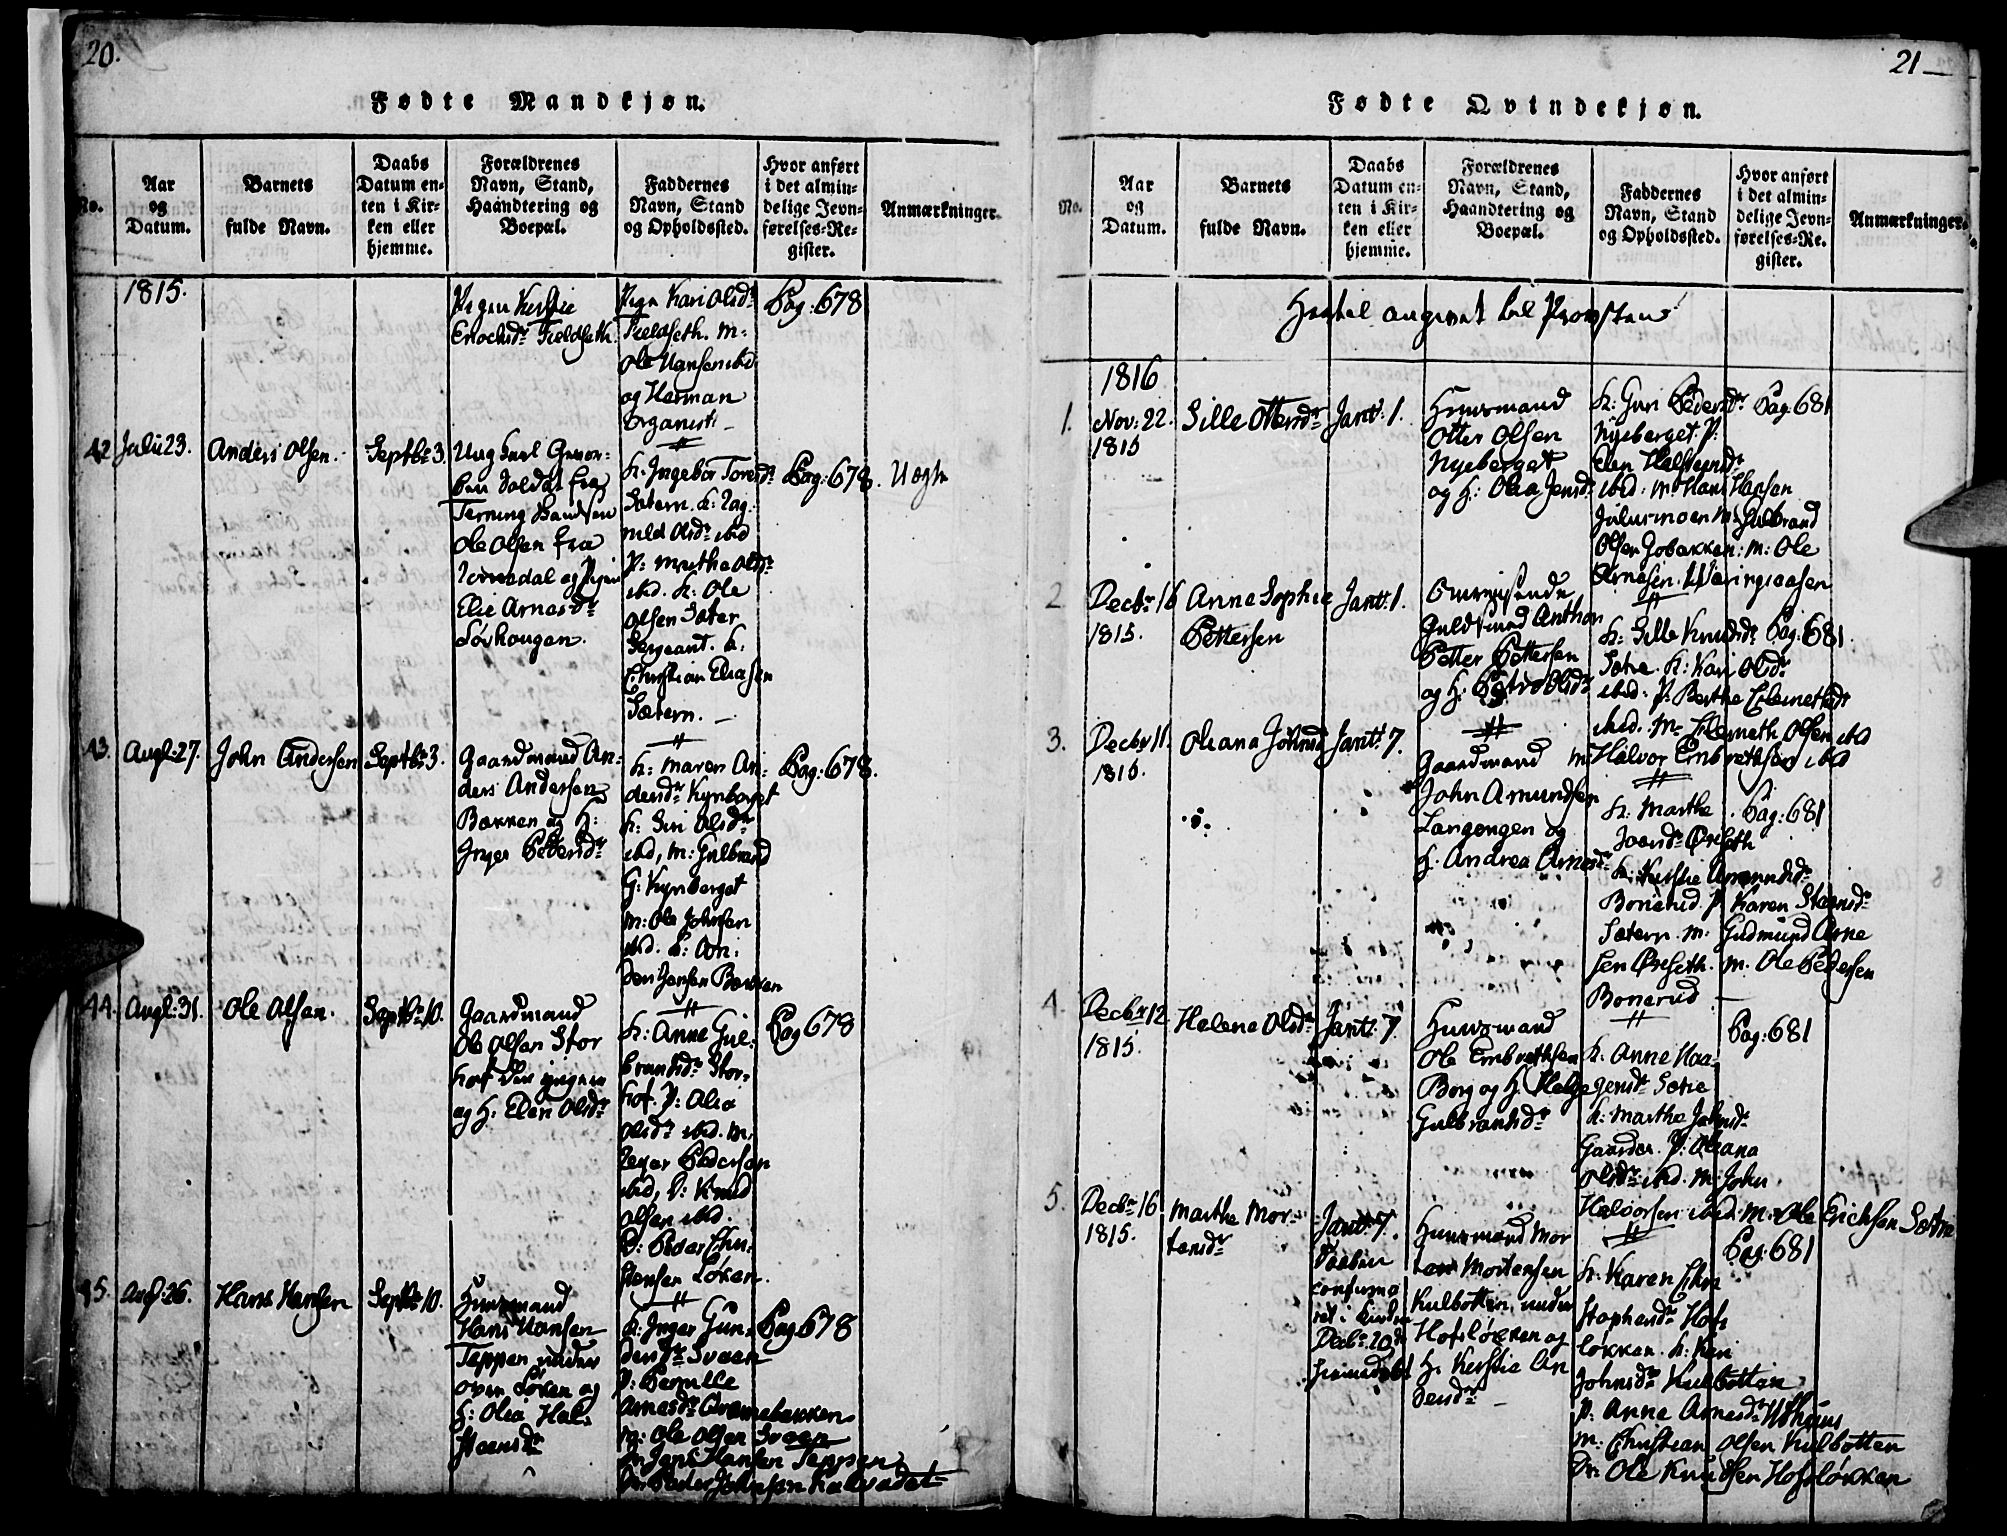 20.
Fødte Mandkjøn.
No.
Aar
og
Datum.
Barnets
fulde Navn.
Daabs
Datum en-
ten i Kir-
ken eller
hjemme.
Forældrenes
Navn, Stand,
Haandtering og
Boepæl.
Faddernes
Navn, Stand
og Opholdssted.
Hvor anført
i det almin-
delige Jevn-
førelses-Re-
gister.
Anmærkninger.
1815.
Pigen Kerstie
Enochsdr
Pige Kari Olsdr
Fieldseth. M:
Ole Hansen ibid
og Herman
Organist
Pag: 678
42
Julii 23.
Anders Olsen.
Septbr 3.
Ung Karl
Soldat fra
Terning
Ole Olsen fra
og Pigen
Elie Arnesdr
Løvhougen.
K. Ingebor Toresdr
Sætern. K:
Olsdr ibid
P: Marthe Olsdr
ibid. K: Ole
Olsen Sæter
Sergeant. K:
Christian Eliasen
Sætern.
Pag: 678.
Uægte
43.
Augl: 27.
John Andersen
Septbr 3.
Gaardmand An-
ders Andersen
Bakken og H:
Inger Pedersdr
K: Maren An-
dersdr Kynberget
K: Siri Olsdr
ibid, M: Gulbrand
G: Kynberget
M: Ole Johnsen
ibid.
Jensen Bakken
Pag: 678.
44.
Augl: 31.
Ole Olsen.
Septbr 10.
Gaardmand
Ole Olsen Stor
hof den yngere
og H. Elen Olsdr
K: Anne Gul-
brandsdr Stor-
hof. P: Olea
Olsdr ibid. M.
Pedersen
ibid, D: Knud
Olsen ibid.
D: Peder Chri-
stensen Løken.
Pag 678
45.
Aug: 26.
Hans Hansen
Septbr 10.
Huusmand
Hans Hansen
Teppen under
øvre Løken og
H: Olea Hal-
steensdr
K: Inger Gun-
dersdr Sveen
P: Pernille
Arnesdr Grønnebakken
M: Ole Olsen Sveen
M Jens Hansen Teppen
Peder Johnsen
Pag 678
21
Fødte Qvindekjøn.
No.
Aar
og
Datum.
Barnets
fulde Navn.
Daabs
Datum en-
ten i Kir-
ken eller
hjemme.
Forældrenes
Navn, Stand,
Haandtering og
Boepæl.
Faddernes
Navn, Stand
og Opholdssted.
Hvor anført
i det almin-
delige Jevn-
førelses-Re-
gister.
Anmærkninger.
Hertil angivet til Provsten
1816
1.
Nov: 22.
1815
Sille Ottersdr
Janv: 1.
Huusmand
Otter Olsen
Nyeberget
og H: Olea Jensdr
K: Guri Pedersdr
Nyeberget. P:
Elen Halstensdr
ibid. M: Hans Hansen
Julusmoen M: Gulbrand
Olsen Jobakken: M: Ole
Arnesen
Pag: 681
2
Decbr 16
1815.
Anne Sophie
Pettersen
Janv: 1.
Guldsmed Anthon
Petter Pettersen
og H.
K: Sille Knudsdr
Sætre. K: Kari Olsdr
ibid. P: Berthe
ibid. M: Olsen ibid
M Halvor Embrethsen ibid
Pag: 681.
3.
Decbr 11.
1815.
Oleana Johnsd
Janv: 7.
Gaardmand
John Amundsen
Langengen og
H. Andrea Arnesdr
K: Marthe
K: Kerstie Amundsdr
Bonerud. P Karen Steensdr
Sætern. M: Gudmund Arne
sen. M. Ole Pedersen
Bonerud
Pag: 681
4.
Decbr 12
1815.
Helene Olsdr
Janv: 7.
Huusmand
Ole Embrethsen
Borg og H. Helge
Gulbrandsdr
K: Anne Haa-
gensdr Sætre
K: Marthe Johnsdr
Gaarder. P: Oleana
Olsdr ibid. M: John
Halvorsen ibid M: Ole Erichsen Sætre
Pag: 681
5.
Decbr 16
1815.
Marthe Mor-
tensdr
Janv: 7.
Daaben
confirme
ret i Kirken
Decbr 20de
hjemmedøbt
Huusmand Mor
ten Mortensen
Kulbotten under
Hofsløkken og
H. Kerstie An
dersdr
K: Karen Chri
stophersdr Hofs
løkken. K: Kari
Johnsdr Kulbotten
P: Anne Arnesdr Uthuus
M: Christian Olsen Kulbotten
M: Ole Knudsen Hofsløkken
Pag: 681